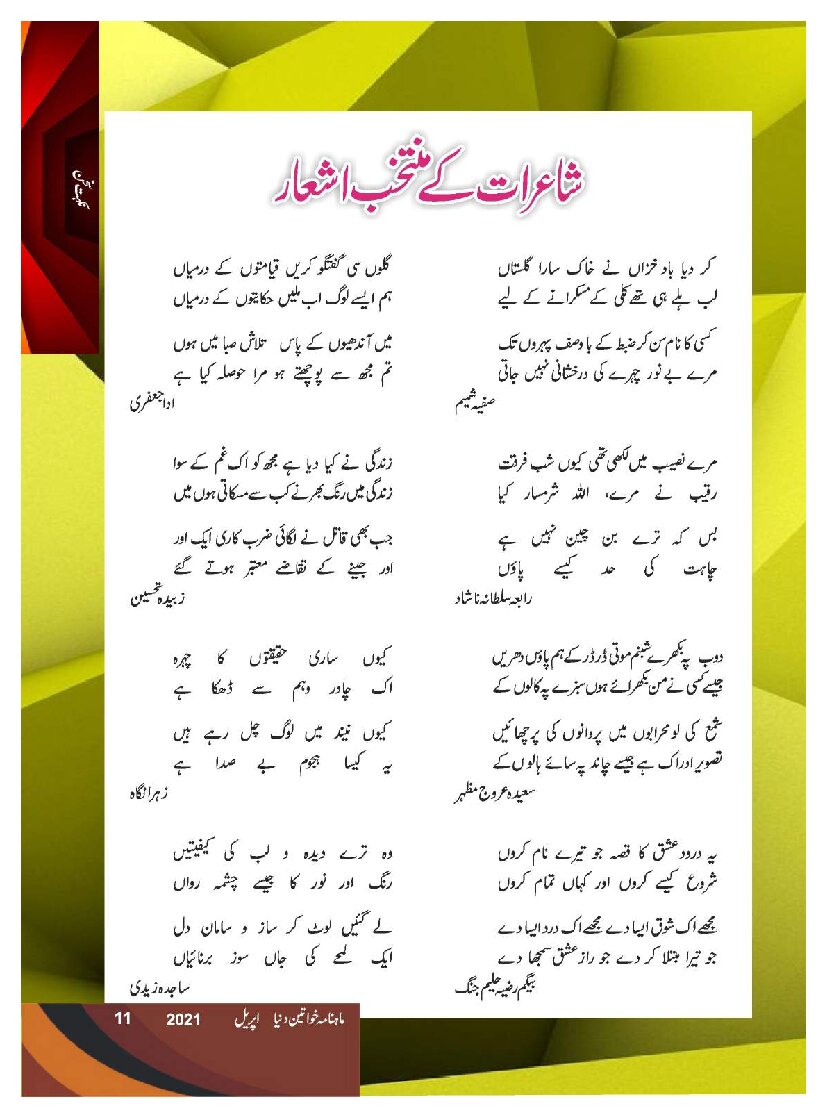 نکہت سخن
شاعرات کے منتخب اشعار
کر دیا باد خزاں نے خاک سارا گلستاں
لب ہلے ہی تھے کلی کے مسکرانے کے لیے
کسی کا نام سن کر ضبط کے باوصف پہروں تک
مرے بے نور چہرے کی درخشانی نہیں جاتی
صفیہ شمیم
مرے نصیب میں لکھی تھی کیوں شب فرقت
رقیب نے مرے، اللہ شرمسار کیا
بس کہ ترے بن چین نہیں ہے
چاہت کی حد کیسے پاؤں
رابعہ سلطانہ ناشاد
دوب پہ بکھرے شبنم موتی ڈر ڈر کے ہم پاؤں دھریں
جیسے کسی نے من بکھرائے ہوں سبزے پہ کالوں کے
شمع کی لو محرابوں میں پروانوں کی پرچھائیں
تصویر ادراک ہے جیسے چاند پہ سائے ہالوں کے
سعیدہ عروج مظہر
یہ درود عشق کا قصہ جو تیرے نام کروں
شروع کیسے کروں اور کہاں تمام کروں
مجھے اک شوق ایسا دے مجھے اک درد ایسا دے
جو تیرا مبتلا کر دے جو راز عشق سمجھا دے
بیگم رضیہ حلیم جنگ
گلوں سی گفتگو کریں قیامتوں کے درمیاں
ہم ایسے لوگ اب ملیں حکایتوں کے درمیاں
میں آندھیوں کے پاس تلاش صبا میں ہوں
تم مجھ سے پوچھتے ہو مرا حوصلہ کیا ہے
ادا جعفری
زندگی نے کیا دیا ہے مجھ کو اک غم کے سوا
زندگی میں رنگ بھرنے کب سے مسکاتی ہوں میں
جب بھی قاتل نے لگائی ضرب کاری ایک اور
اور جینے کے تقاضے معتبر ہوتے گئے
زبیدہ تحسین
کیوں ساری حقیقتوں کا چہرہ
اک چادر وہم سے ڈھکا ہے
کیوں نیند میں لوگ چل رہے ہیں
یہ کیسا ہجوم بے صدا ہے
زہرا نگاہ
وہ ترے دیدہ و لب کی کیفیتیں
رنگ اور نور کا جیسے چشمہ رواں
لے گئیں لوٹ کر ساز و سامان دل
ایک لمحے کی جاں سوز برنائیاں
ساجدہ زیدی
ماہنامہ خواتین دنیا اپریل 2021 11